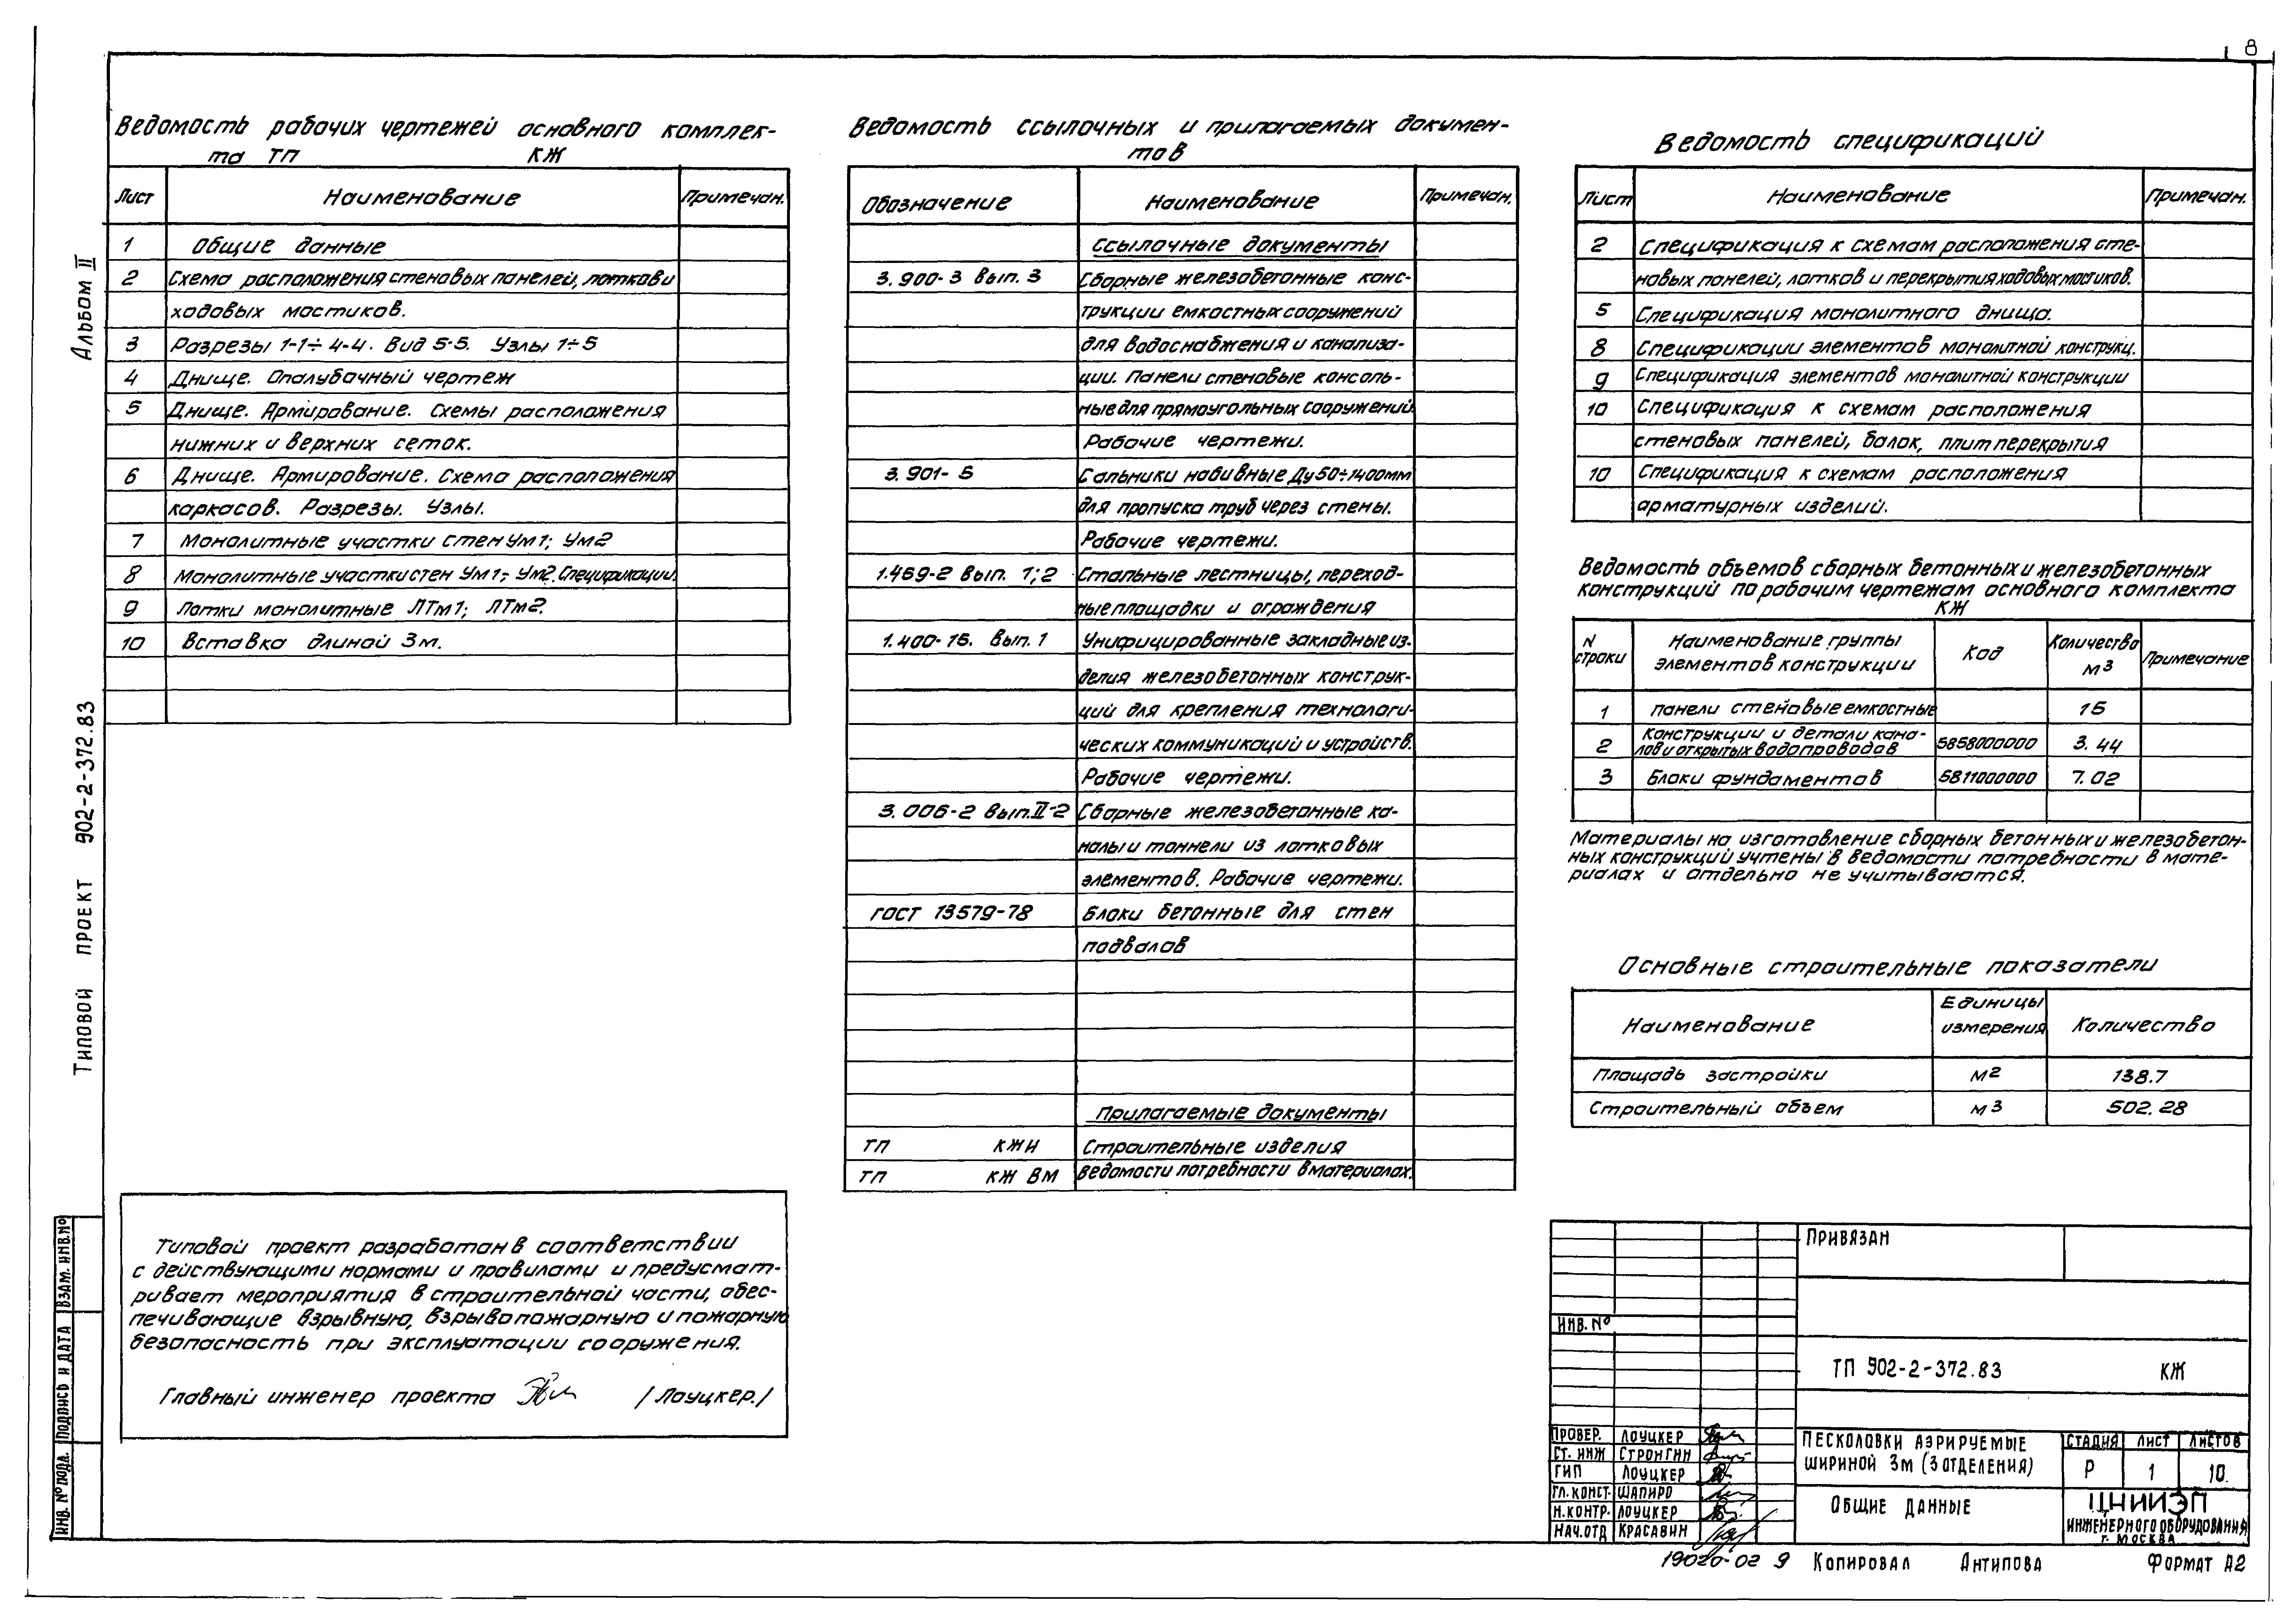 8
Альбом II
Типовой проект 902-2-372.83
Ведомость рабочих чертежей основного комплек-
та ТП КЖ
Лист Наименование Примечан.
1 Общие данные
2 Схема расположения стеновых панелей, лотков и
ходовых мостиков.
3 Разрезы 1-1÷4-4. Вид 5-5. Узлы 1÷5
4 Днище. Опалубочный чертеж
5 Днище. Армирование. Схемы расположения
нижних и верхних сеток.
6 Днище. Армирование. Схема расположения
каркасов. Разрезы. Узлы.
7 Монолитные участки стен Ум1; Ум2
8 Монолитные участки стен Ум1; Ум2. Спецификации.
9 Лотки монолитные ЛТм1; ЛТм2.
10 Вставка длиной 3м.
Типовой проект разработан в соответствии
с действующими нормами и правилами и предусмат-
ривает мероприятия в строительной части, обес-
печивающие взрывную, взрывопожарную и пожарную
безопасность при эксплуатации сооружения.
Главный инженер проекта /Лоуцкер./
Ведомость ссылочных и прилагаемых докумен-
тов
Обозначение Наименование Примечан.
Ссылочные документы
3.900-3 вып. 3 Сборные железобетонные конс-
трукции емкостных сооружений
для водоснабжения и канализа-
ции. Панели стеновые консоль-
ные для прямоугольных сооружений.
Рабочие чертежи.
3.901-5 Сальники набивные Ду50÷1400мм
для пропуска труб через стены.
Рабочие чертежи.
1.459-2 вып. 1;2 Стальные лестницы, переход-
ные площадки и ограждения
1.400-15. вып.1 Унифицированные закладные из-
делия железобетонных конструк-
ций для крепления технологи-
ческих коммуникаций и устройств.
Рабочие чертежи.
3.006-2 вып.II-2 Сборные железобетонные ка-
налы и тоннели из лотковых
элементов. Рабочие чертежи.
ГОСТ 13579-78 Блоки бетонные для стен
подвалов
Прилагаемые документы
ТП КЖИ Строительные изделия
ТП КЖ ВМ Ведомости потребности в материалах.
Ведомость спецификаций
Лист Наименование Примечан.
2 Спецификация к схемам расположения сте-
новых панелей, лотков и перекрытия ходовых мостиков.
5 Спецификация монолитного днища.
8 Спецификации элементов монолитной конструкц.
9 Спецификация элементов монолитной конструкции
10 Спецификация к схемам расположения
стеновых панелей, балок, плит перекрытия
10 Спецификация к схемам расположения
арматурных изделий.
Ведомость объемов сборных бетонных и железобетонных
конструкций по рабочим чертежам основного комплекта
КЖ
N строки Наименование группы элементов конструкции Код Количество м3 Примечание
1 Панели стеновые емкостные 15
2 Конструкции и детали кана-
лов и открытых водопроводов 5858000000 3.44
3 Блоки фундаментов 5811000000 7.02
Материалы на изготовление сборных бетонных и железобетон-
ных конструкций учтены в ведомости потребности в мате-
риалах и отдельно не учитываются.
Основные строительные показатели
Наименование Единицы измерения Количество
Площадь застройки м2 138.7
Строительный объем м3 502.28
Привязан
Инв. №
ТП 902-2-372.83 КЖ
Провер. Лоуцкер
Ст. инж Стронгин
ГИП Лоуцкер
Гл. конст. Шапиро
Н.контр. Лоуцкер
Нач.отд Красавин
Песколовки аэрируемые
шириной 3м (3 отделения)
Стадия Лист Листов
Р 1 10.
Общие данные
ЦНИИЭП
инженерного оборудования
г. Москва
19020-02 9 Копировал Антипова Формат А2
Инв. № подл. Подпись и дата Взам. инв.№